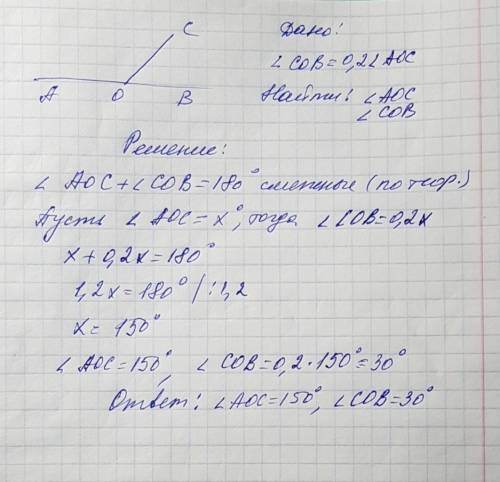 C
A O B
Дано:
∠ COB = 0,2∠ AOC
Найти: ∠AOC
∠ COB
Решение:
∠ AOC + ∠ COB = 180° смежные (по теор.)
Пусть ∠ AOC = x°, тогда ∠ COB = 0,2x
x + 0,2x = 180°
1,2x = 180° / : 1,2
x = 150°
∠ AOC = 150°, ∠ COB = 0,2 · 150° = 30°
Ответ: ∠AOC = 150°, ∠COB = 30°